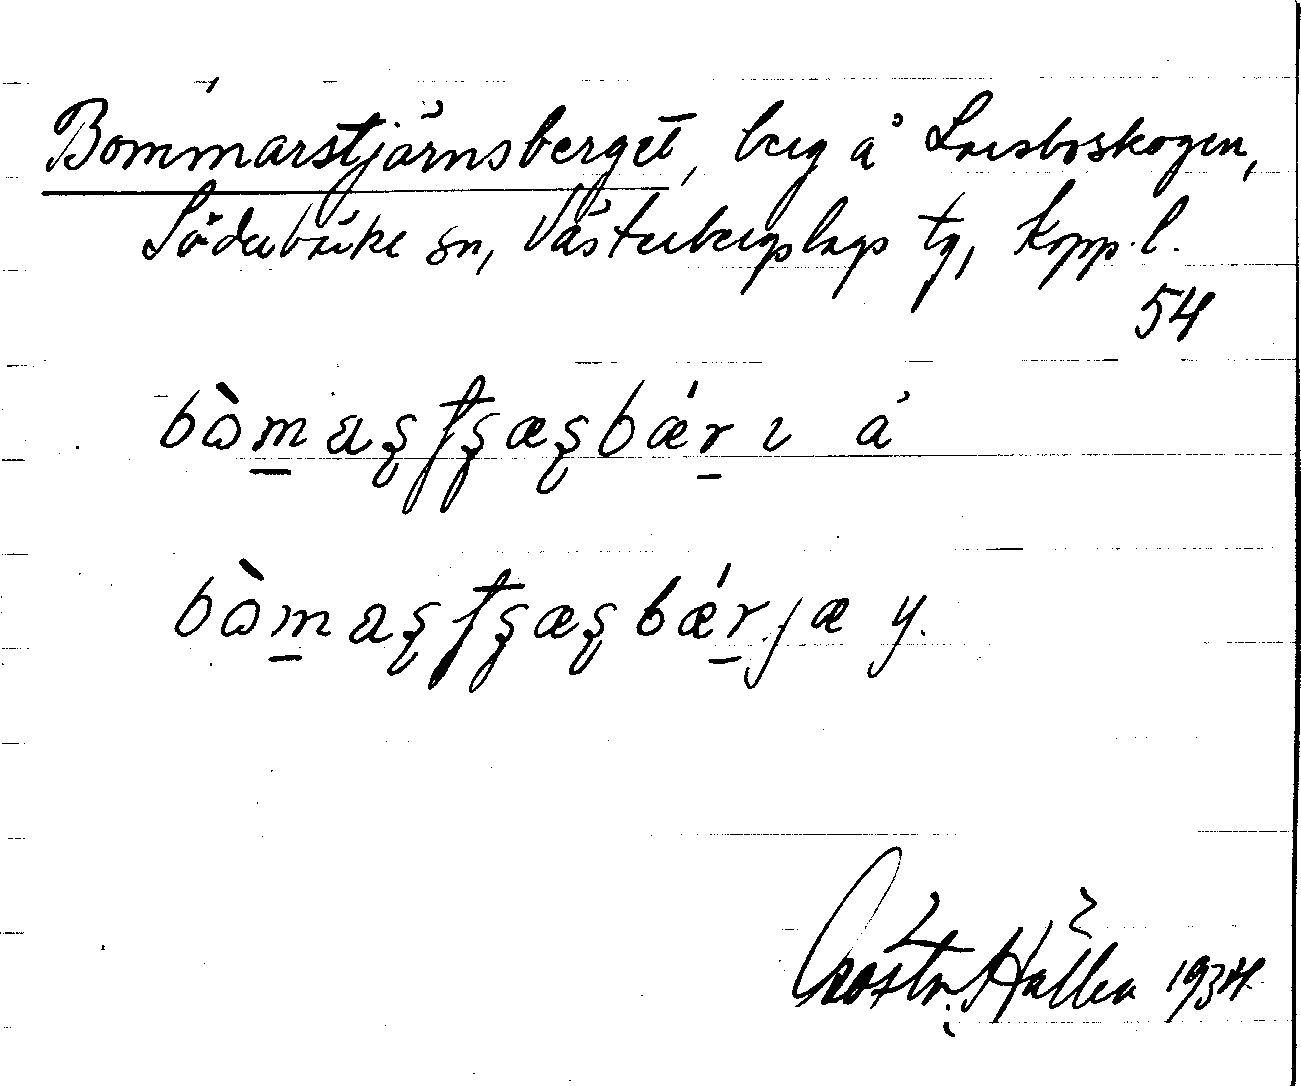 Bommarstjärnsberget, berg å Lorsboskogen,
Söderbärke sn, Västerbergslags tg, Kopp. l.
54
bòmaʂfʂæʂbǽr ɩ å
bòmaʂfʂæʂbǽrjæ y.
Gösta Hallén 1934